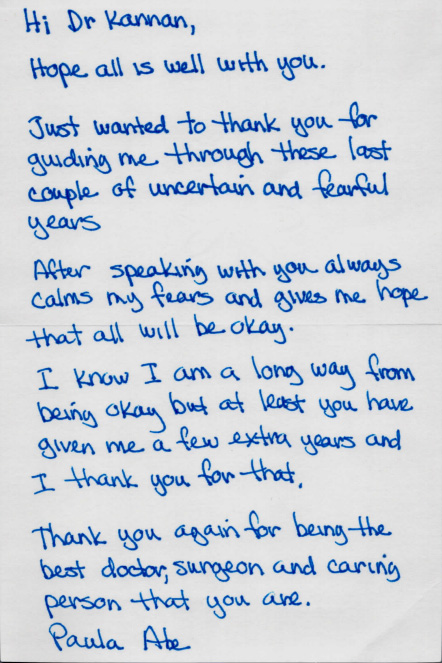 Hi Dr Kannan,
Hope all is well with you.
Just wanted to thank you for
guiding me through these last
couple of uncertain and fearful
years
After speaking with you always
calms my fears and gives me hope
that all will be okay.
I know I am a long way from
being okay but at least you have
given me a few extra years and
I thank you for that.
Thank you again for being the
best doctor, surgeon and caring
person that you are.
Paula Abe